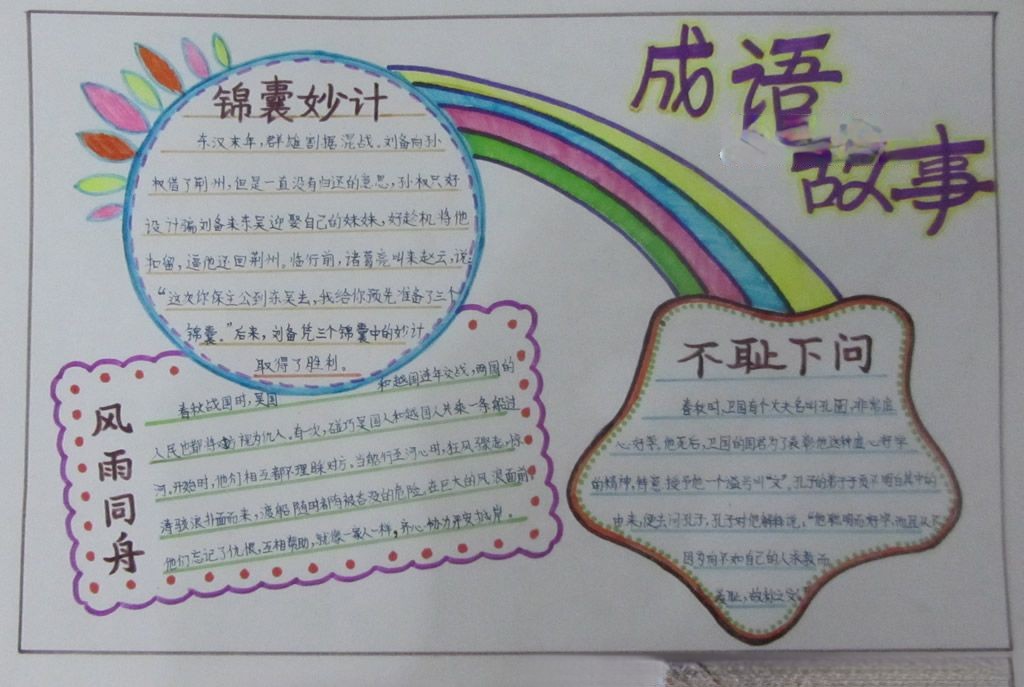 成语
故事
锦囊妙计
东汉末年，群雄割据混战。刘备向孙
权借了荆州，但是一直没有归还的意思，孙权只好
设计骗刘备来东吴迎娶自己的妹妹，好趁机将他
扣留，逼他还回荆州。临行前，诸葛亮叫来赵云，说：
“这次你保主公到东吴去，我给你预先准备了三个
锦囊。”后来，刘备凭三个锦囊中的妙计
取得了胜利。
风雨同舟
春秋战国时，吴国和越国连年交战，两国的
人民也都将 视为仇人。有一次，碰巧吴国人和越国人共乘一条船过
河。开始时，他们相互都不理睬对方，当船行至河心时，狂风骤起，惊
涛骇浪扑面而来，渡船随时都有被吞没的危险。在巨大的风浪面前，
他们忘记了仇恨，互相帮助，就像一家人一样，齐心协力平安抵岸。
不耻下问
春秋时，卫国有个大夫名叫孔圉，非常虚
心好学，他死后，卫国的国君为了表彰他这种虚心好学
的精神，特意授予他一个谥号叫“文”。孔子的弟子子贡不明白其中的
由来，便去问孔子，孔子对他解释说：“他聪明而好学，而且从不
因为向不如自己的人求教而
羞耻，故称之文。”